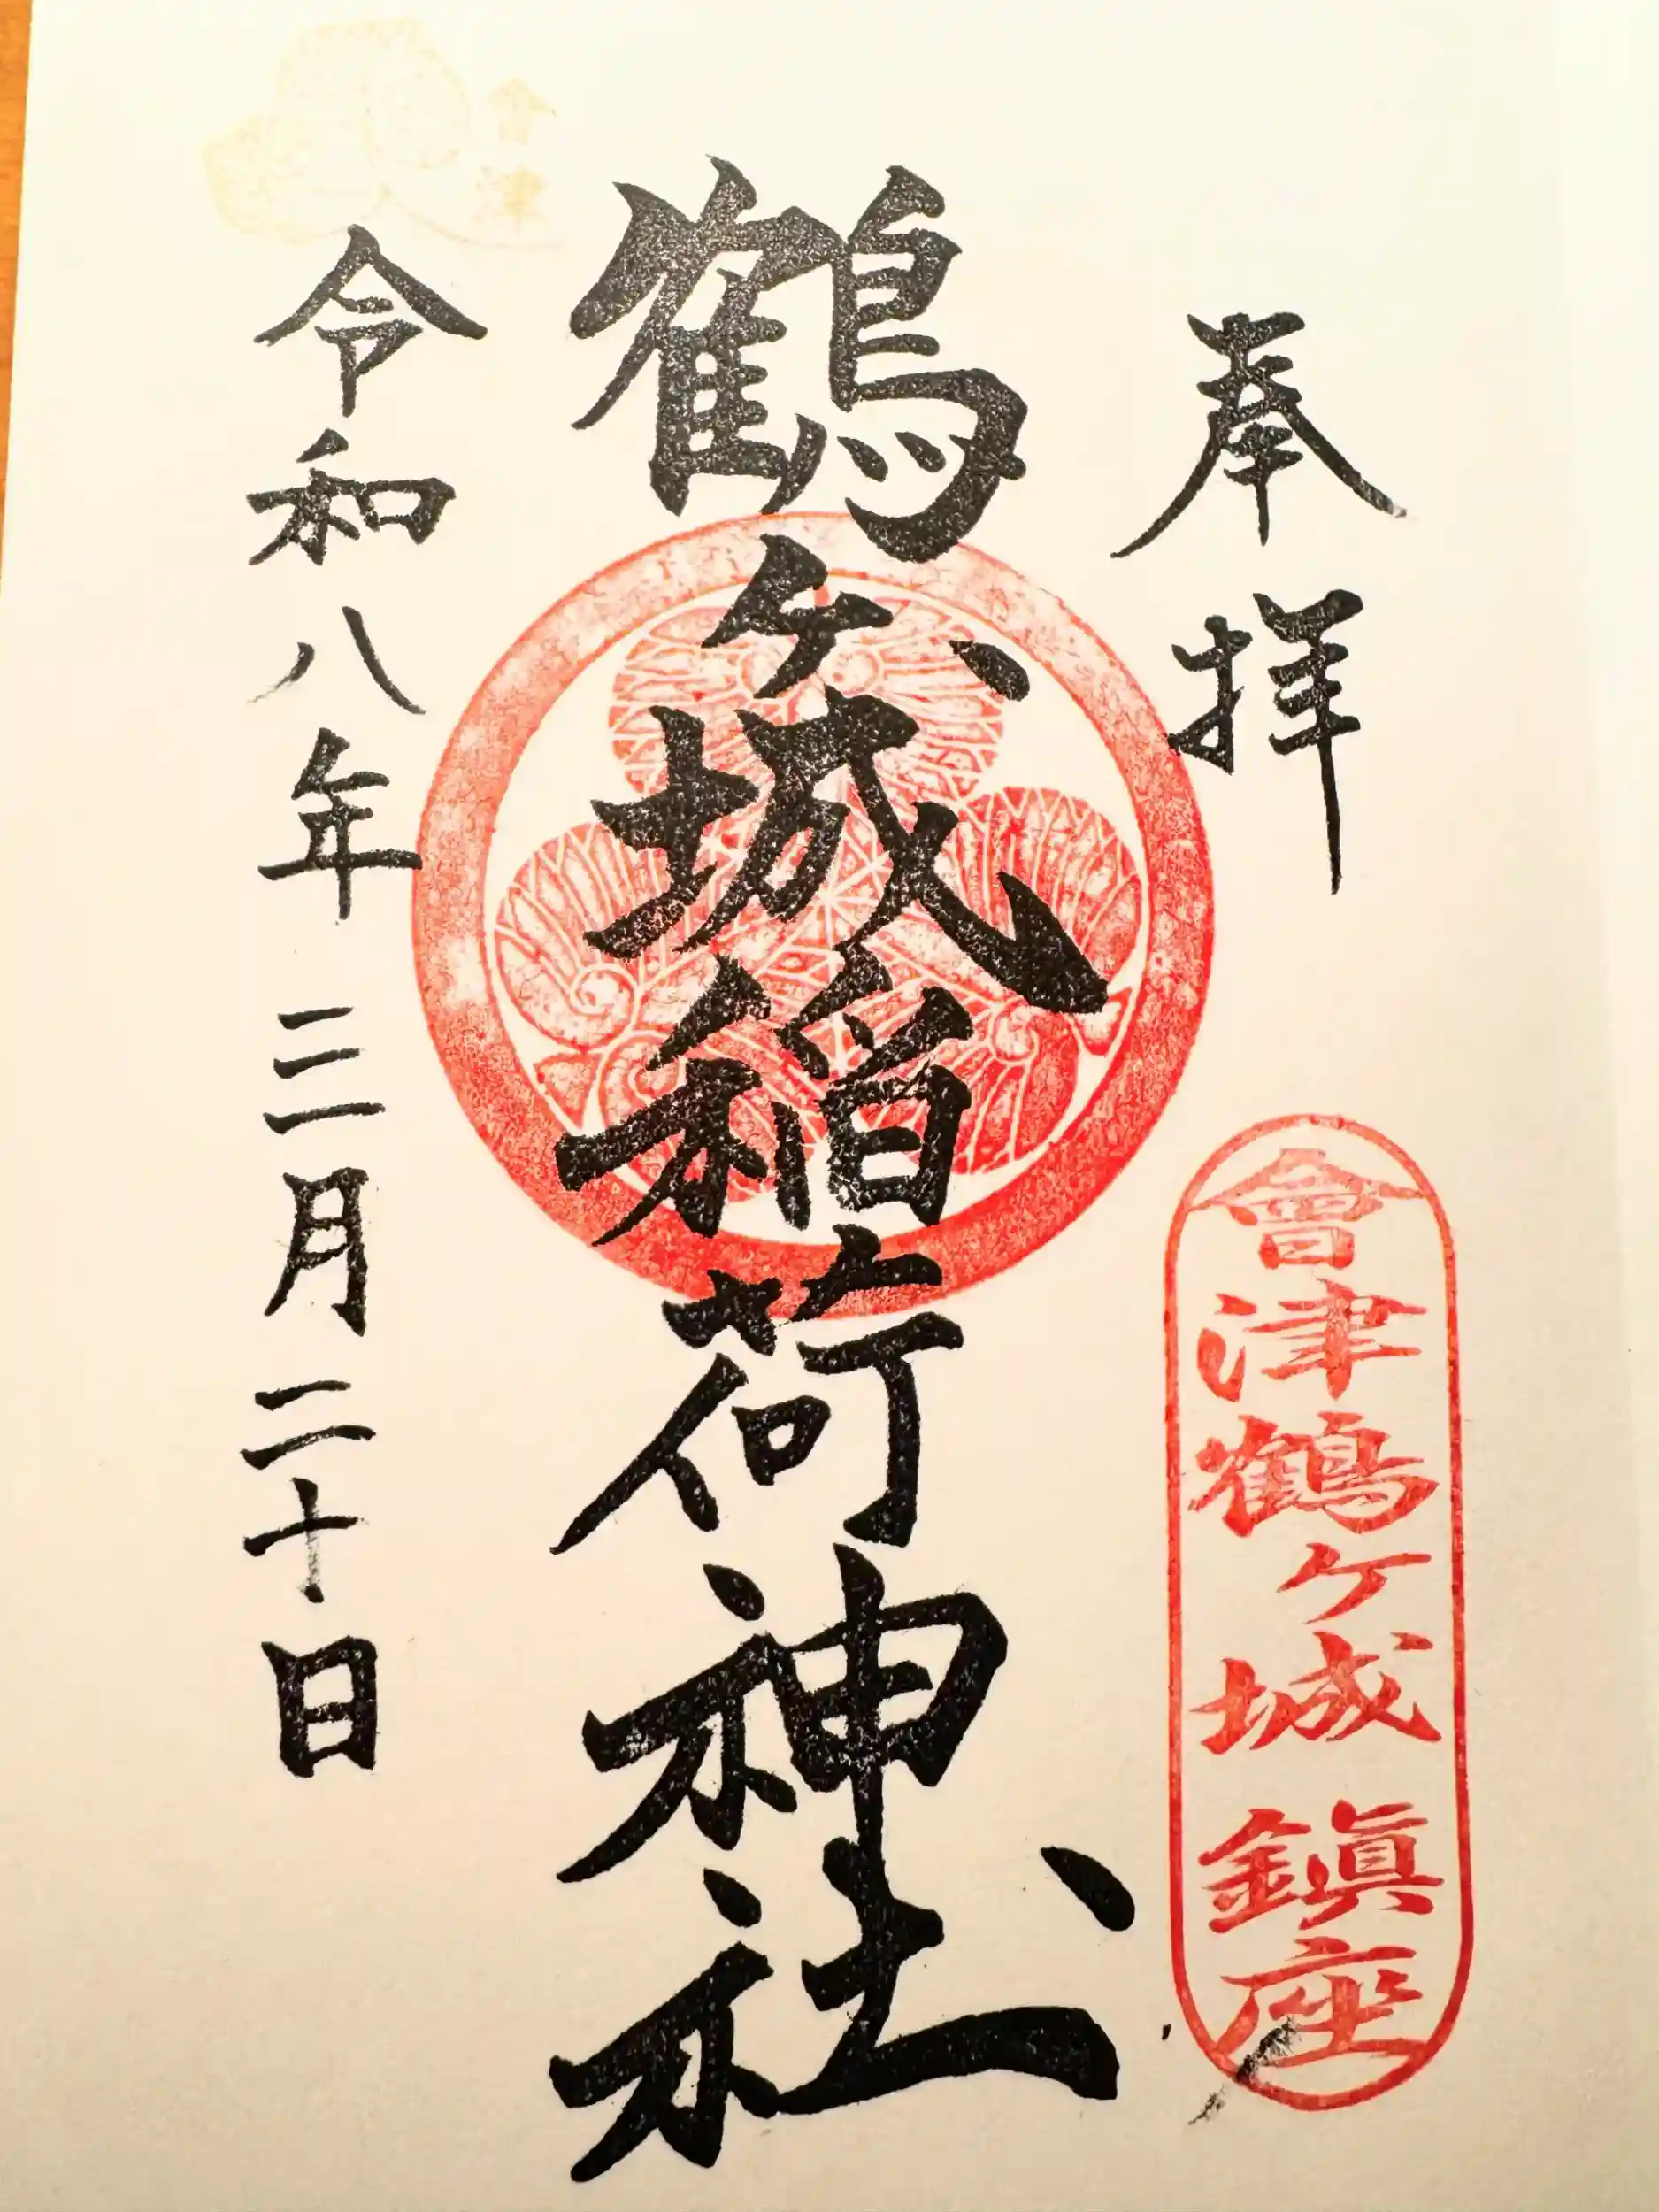 奉拝
會津鶴ヶ城鎮座
鶴ヶ城稲荷神社
令和八年三月二十日
會津